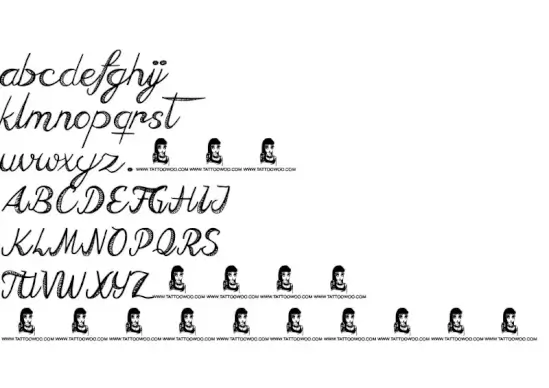 abcdefghij
klmnopqrst
uvwxyz.
WWW.TATTOOWOO.COM WWW.TATTOOWOO.COM WWW.TATTOOWOO.COM
ABCDEFGHIJ
KLMNOPQRS
TUVWXYZ
WWW.TATTOOWOO.COM WWW.TATTOOWOO.COM WWW.TATTOOWOO.COM WWW.TATTOOWOO.COM
WWW.TATTOOWOO.COM WWW.TATTOOWOO.COM WWW.TATTOOWOO.COM WWW.TATTOOWOO.COM WWW.TATTOOWOO.COM WWW.TATTOOWOO.COM WWW.TATTOOWOO.COM WWW.TATTOOWOO.COM WWW.TATTOOWOO.COM WWW.TATTOOWOO.COM